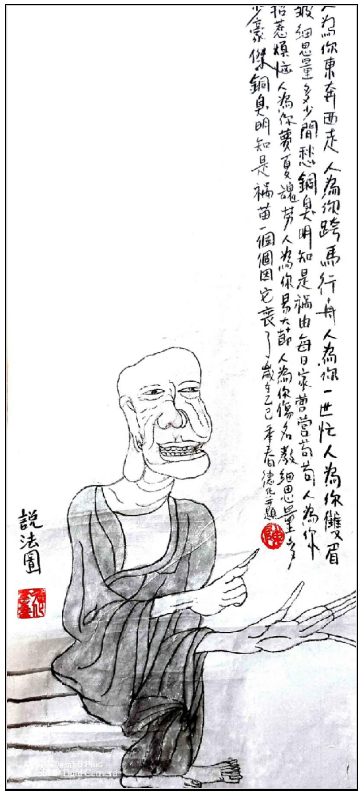 人為你東奔西走人為你跨馬行舟人為你一世忙人為你雙眉
皺細思量多少閒愁銅臭明知是禍由每日家營營苟苟人為你
招惹煩惱人為你夢魂勞人為你易大節人為你傷名教細思量多
少豪傑銅臭明知是禍苗一個個因它喪了歲乙巳年春德題
陳
說法圖